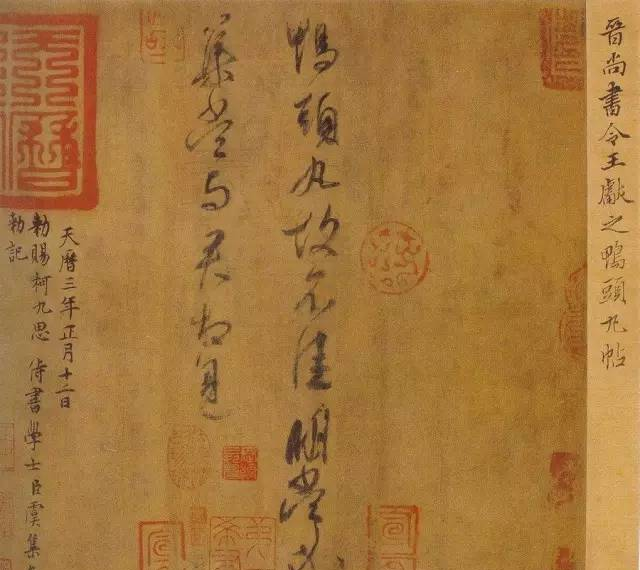 晉尚書令王獻之鴨頭丸帖
鴨頭丸故不佳明當必
集當與君相見
天曆三年正月十二日
勑賜柯九思侍書學士臣虞集
勑記